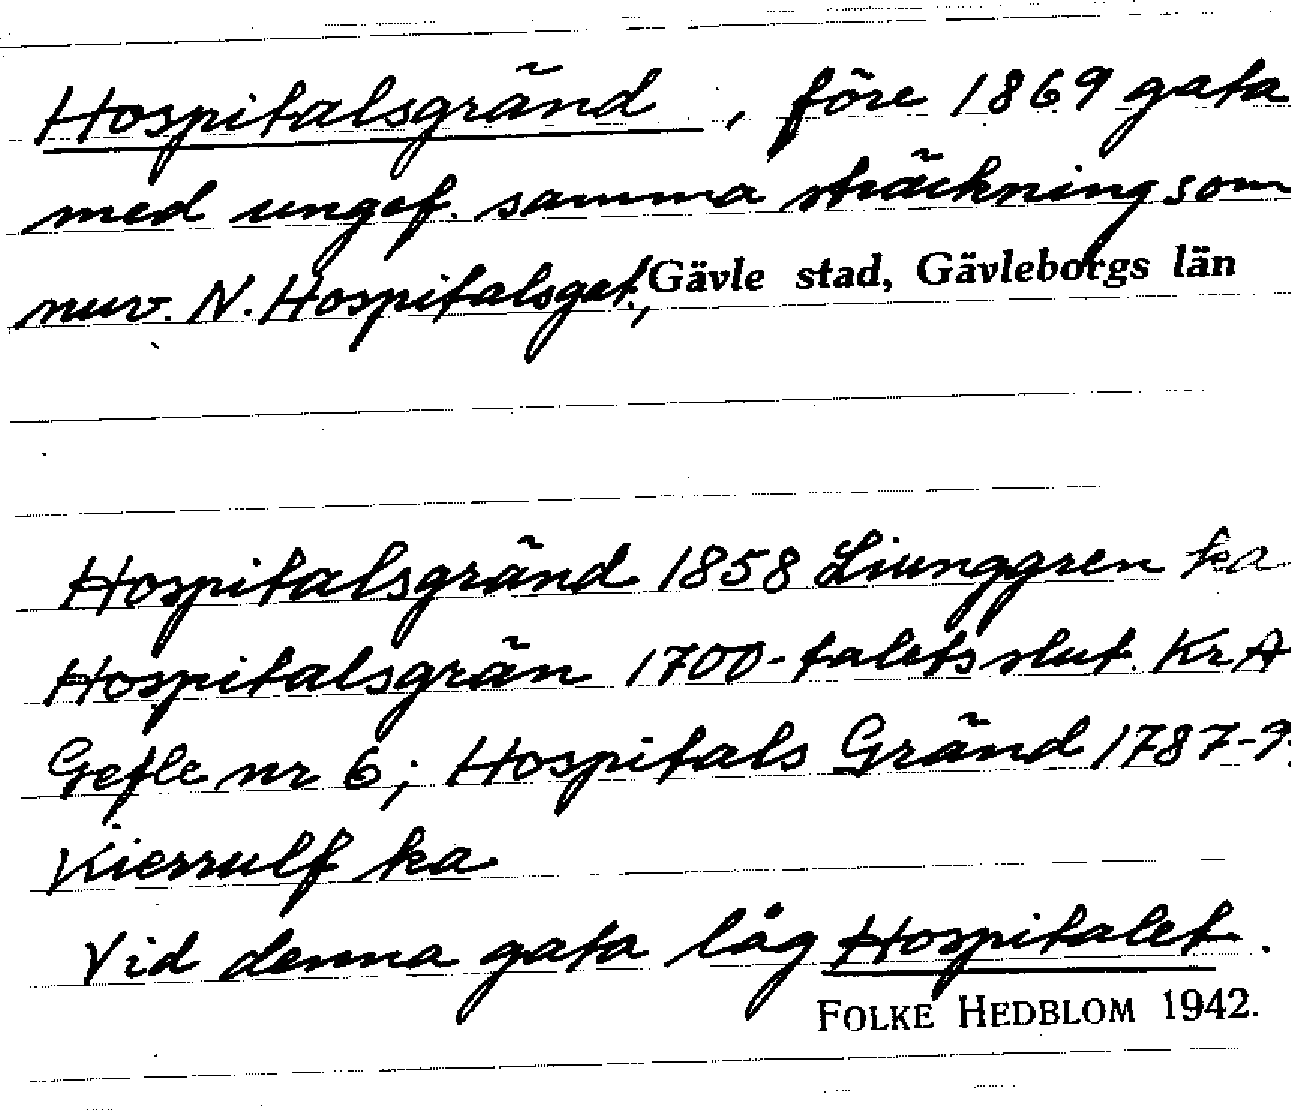 Hospitalsgränd, före 1869 gata
med ungef. samma sträckning som
nuv. N. Hospitalsgat., Gävle stad, Gävleborgs län
Hospitalsgränd 1858 Liunggren ka
Hospitalsgrän 1700-talets slut KrA
Gefle nr 6; Hospitals Gränd 1787-9
Kierrulf ka
Vid denna gata låg Hospitalet.
FOLKE HEDBLOM 1942.